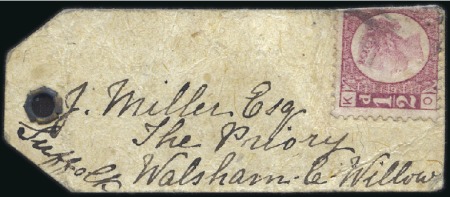 J. Miller Esq
The Priory
Walsham-C-Willow
Suffolk
K
1/2
d
O